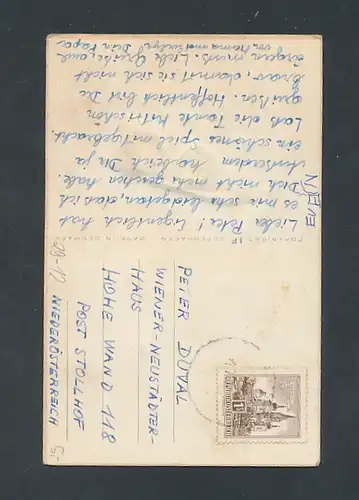 Lieber Peter! Eigentlich hat
es mir sehr leidgetan, daß ich
Dich nicht mehr gesehen habe.
Außerdem habe ich Dir ja
ein schönes Spiel mitgebracht.
Laß die Tante Fritzi schön
grüßen. Hoffentlich bist Du
brav, damit sie sich nicht
ärgern muß. Liebe Grüße, auch
von Mama und Dein Papa
COPYRIGHT
MADE IN GERMANY
PETER DUVAL
WIENER-NEUSTÄDTER-
HAUS
HOHE WAND 118
POST STOLLHOF
NIEDERÖSTERREICH